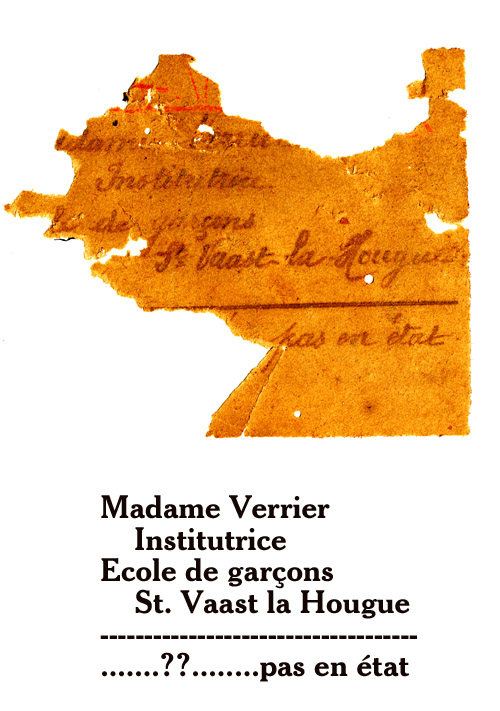 adame
Institutrice
de garçons
St Vaast la Hougue
pas en état
Madame Verrier
Institutrice
Ecole de garçons
St. Vaast la Hougue
------------------------------------
.......??........pas en état